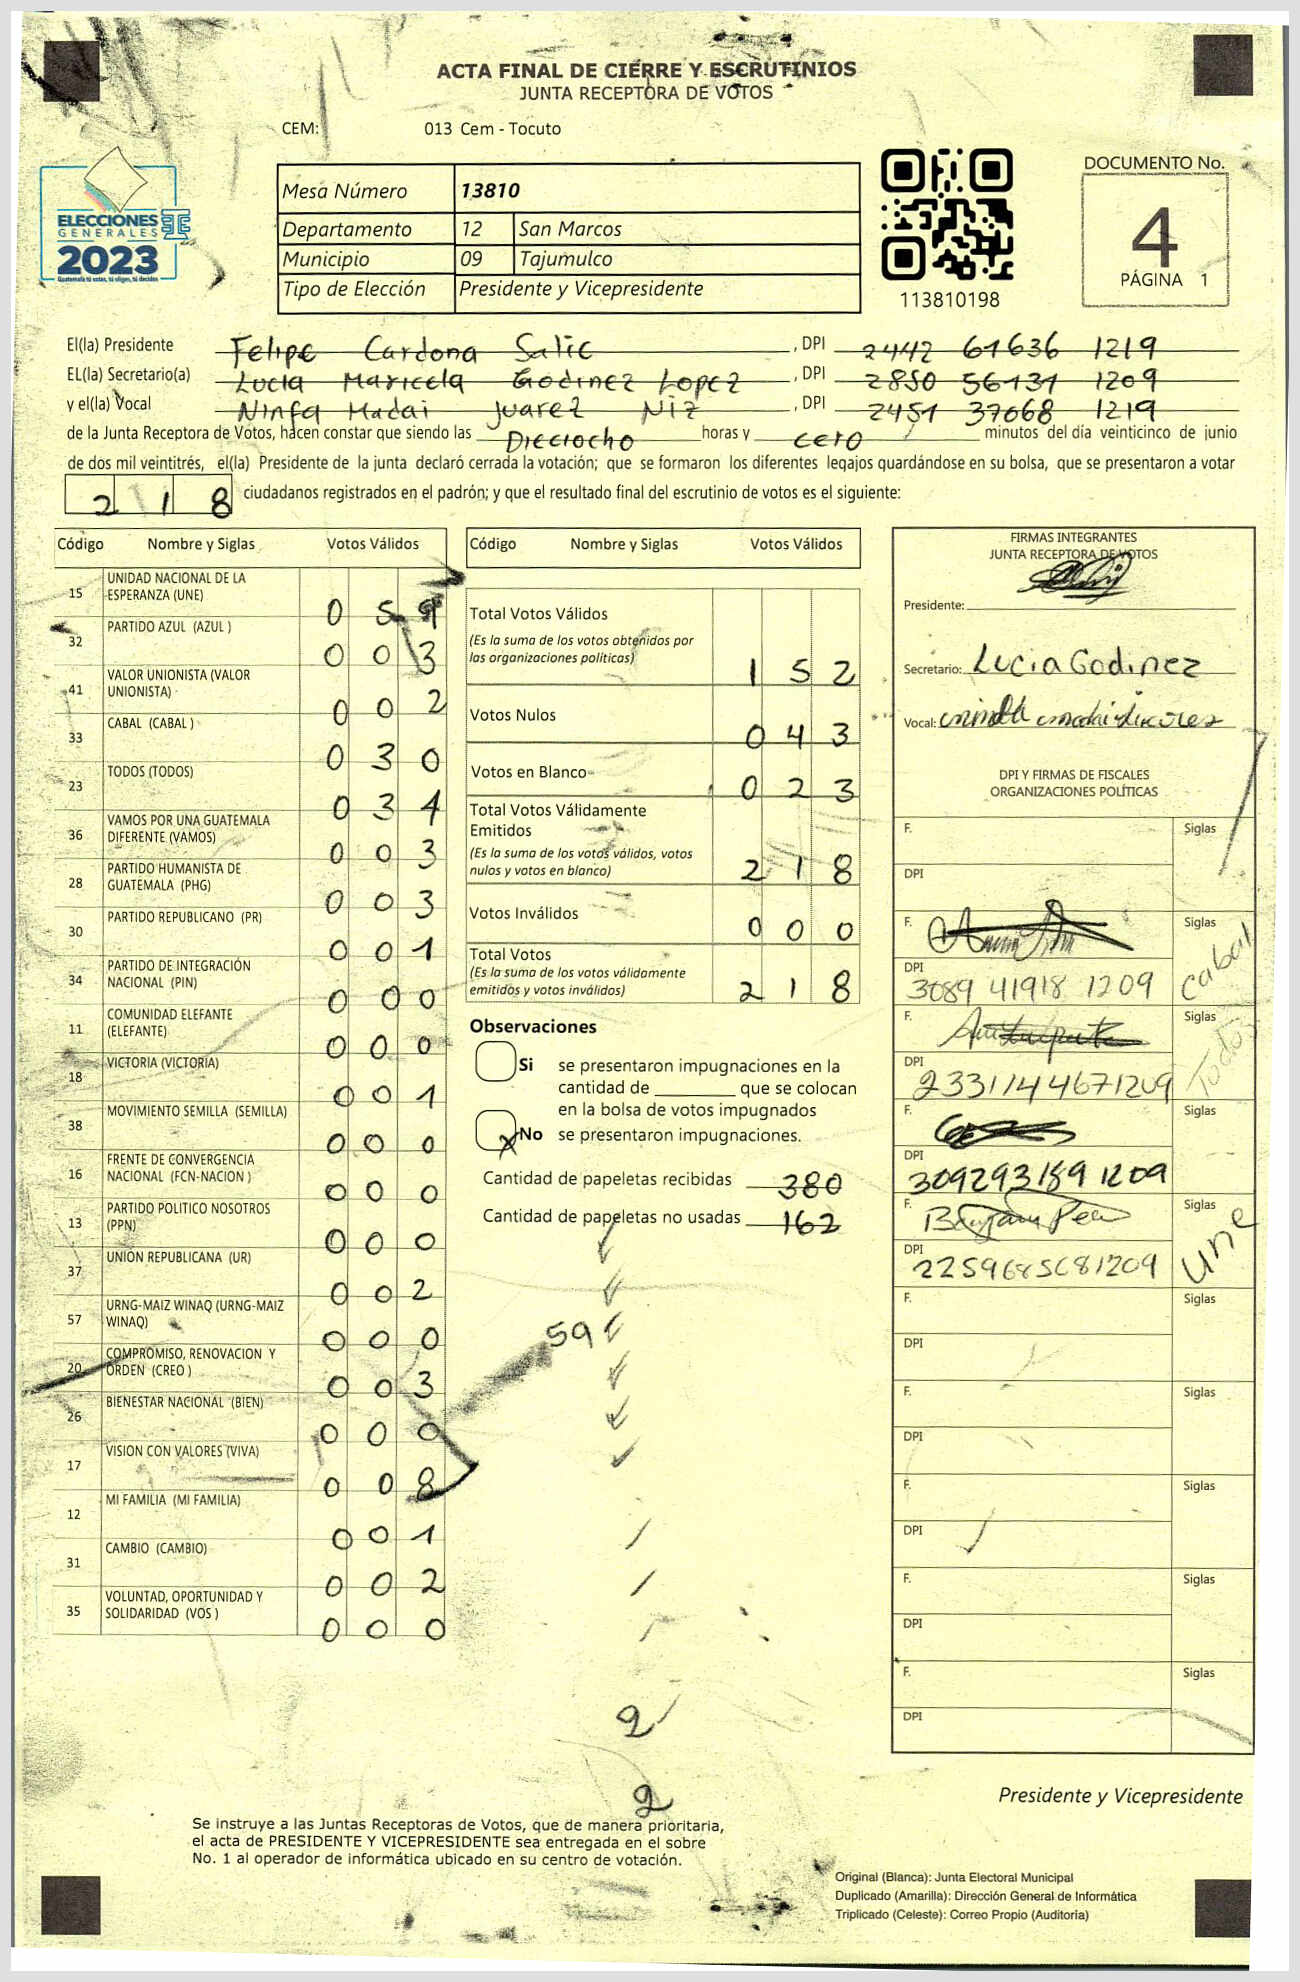 ACTA FINAL DE CIERRE Y ESCRUTINIOS
JUNTA RECEPTORA DE VOTOS
CEM: 013 Cem - Tocuto
ELECCIONES
GENERALES
2023
Guatemala tú votas, tú eliges, tú decides
Mesa Número 13810
Departamento 12 San Marcos
Municipio 09 Tajumulco
Tipo de Elección Presidente y Vicepresidente
113810198
DOCUMENTO No.
4
PÁGINA 1
El(la) Presidente Felipe Cardona Salic , DPI 2442 61636 1219
EL(la) Secretario(a) Lucia Maricela Godinez Lopez , DPI 2850 56131 1209
y el(la) Vocal Ninfa Madai Juarez Niz , DPI 2451 37068 1219
de la Junta Receptora de Votos, hacen constar que siendo las Dieciocho horas y cero minutos del día veinticinco de junio
de dos mil veintitrés, el(la) Presidente de la junta declaró cerrada la votación; que se formaron los diferentes legajos quardándose en su bolsa, que se presentaron a votar
2 1 8 ciudadanos registrados en el padrón; y que el resultado final del escrutinio de votos es el siguiente:
Código Nombre y Siglas Votos Válidos
15 UNIDAD NACIONAL DE LA ESPERANZA (UNE) 0 5 9
32 PARTIDO AZUL (AZUL ) 0 0 3
41 VALOR UNIONISTA (VALOR UNIONISTA) 0 0 2
33 CABAL (CABAL ) 0 3 0
23 TODOS (TODOS) 0 3 4
36 VAMOS POR UNA GUATEMALA DIFERENTE (VAMOS) 0 0 3
28 PARTIDO HUMANISTA DE GUATEMALA (PHG) 0 0 3
30 PARTIDO REPUBLICANO (PR) 0 0 1
34 PARTIDO DE INTEGRACIÓN NACIONAL (PIN) 0 0 0
11 COMUNIDAD ELEFANTE (ELEFANTE) 0 0 0
18 VICTORIA (VICTORIA) 0 0 1
38 MOVIMIENTO SEMILLA (SEMILLA) 0 0 0
16 FRENTE DE CONVERGENCIA NACIONAL (FCN-NACION ) 0 0 0
13 PARTIDO POLITICO NOSOTROS (PPN) 0 0 0
37 UNIÓN REPUBLICANA (UR) 0 0 2
57 URNG-MAIZ WINAQ (URNG-MAIZ WINAQ) 0 0 0
20 COMPROMISO, RENOVACION Y ORDEN (CREO ) 0 0 3
26 BIENESTAR NACIONAL (BIEN) 0 0 0
17 VISION CON VALORES (VIVA) 0 0 8
12 MI FAMILIA (MI FAMILIA) 0 0 1
31 CAMBIO (CAMBIO) 0 0 2
35 VOLUNTAD, OPORTUNIDAD Y SOLIDARIDAD (VOS ) 0 0 0
Código Nombre y Siglas Votos Válidos
Total Votos Válidos 1 5 2
(Es la suma de los votos obtenidos por
las organizaciones políticas)
Votos Nulos 0 4 3
Votos en Blanco 0 2 3
Total Votos Válidamente
Emitidos 2 1 8
(Es la suma de los votos válidos, votos
nulos y votos en blanco)
Votos Inválidos 0 0 0
Total Votos 2 1 8
(Es la suma de los votos válidamente
emitidos y votos inválidos)
Observaciones
Si se presentaron impugnaciones en la
cantidad de ________ que se colocan
en la bolsa de votos impugnados
X No se presentaron impugnaciones.
Cantidad de papeletas recibidas 380
Cantidad de papeletas no usadas 162
59
2
2
FIRMAS INTEGRANTES
JUNTA RECEPTORA DE VOTOS
Presidente:
Secretario: Lucia Godinez
Vocal:
DPI Y FIRMAS DE FISCALES
ORGANIZACIONES POLÍTICAS
F. Siglas
DPI
F. Siglas cabal
DPI 3089 41918 1209
F. Siglas Todos
DPI 2331144671209
F. Siglas
DPI 309293189 1209
F. Siglas une
DPI 2259685681209
F. Siglas
DPI
F. Siglas
DPI
F. Siglas
DPI
F. Siglas
DPI
F. Siglas
DPI
Presidente y Vicepresidente
Se instruye a las Juntas Receptoras de Votos, que de manera prioritaria,
el acta de PRESIDENTE Y VICEPRESIDENTE sea entregada en el sobre
No. 1 al operador de informática ubicado en su centro de votación.
Original (Blanca): Junta Electoral Municipal
Duplicado (Amarilla): Dirección General de Informática
Triplicado (Celeste): Correo Propio (Auditoría)